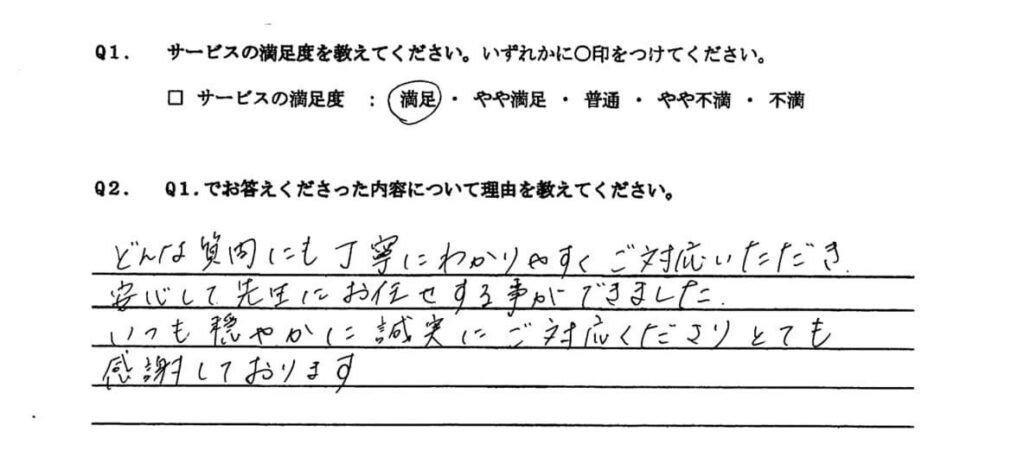 Q1. サービスの満足度を教えてください。いずれかに〇印をつけてください。
□ サービスの満足度 : 満足・ やや満足 ・ 普通 ・ やや不満 ・ 不満
Q2. Q1.でお答えくださった内容について理由を教えてください。
どんな質問にも丁寧にわかりやすくご対応いただき
安心して先生にお任せする事ができました.
いつも穏やかに誠実にご対応くださりとても
感謝しております